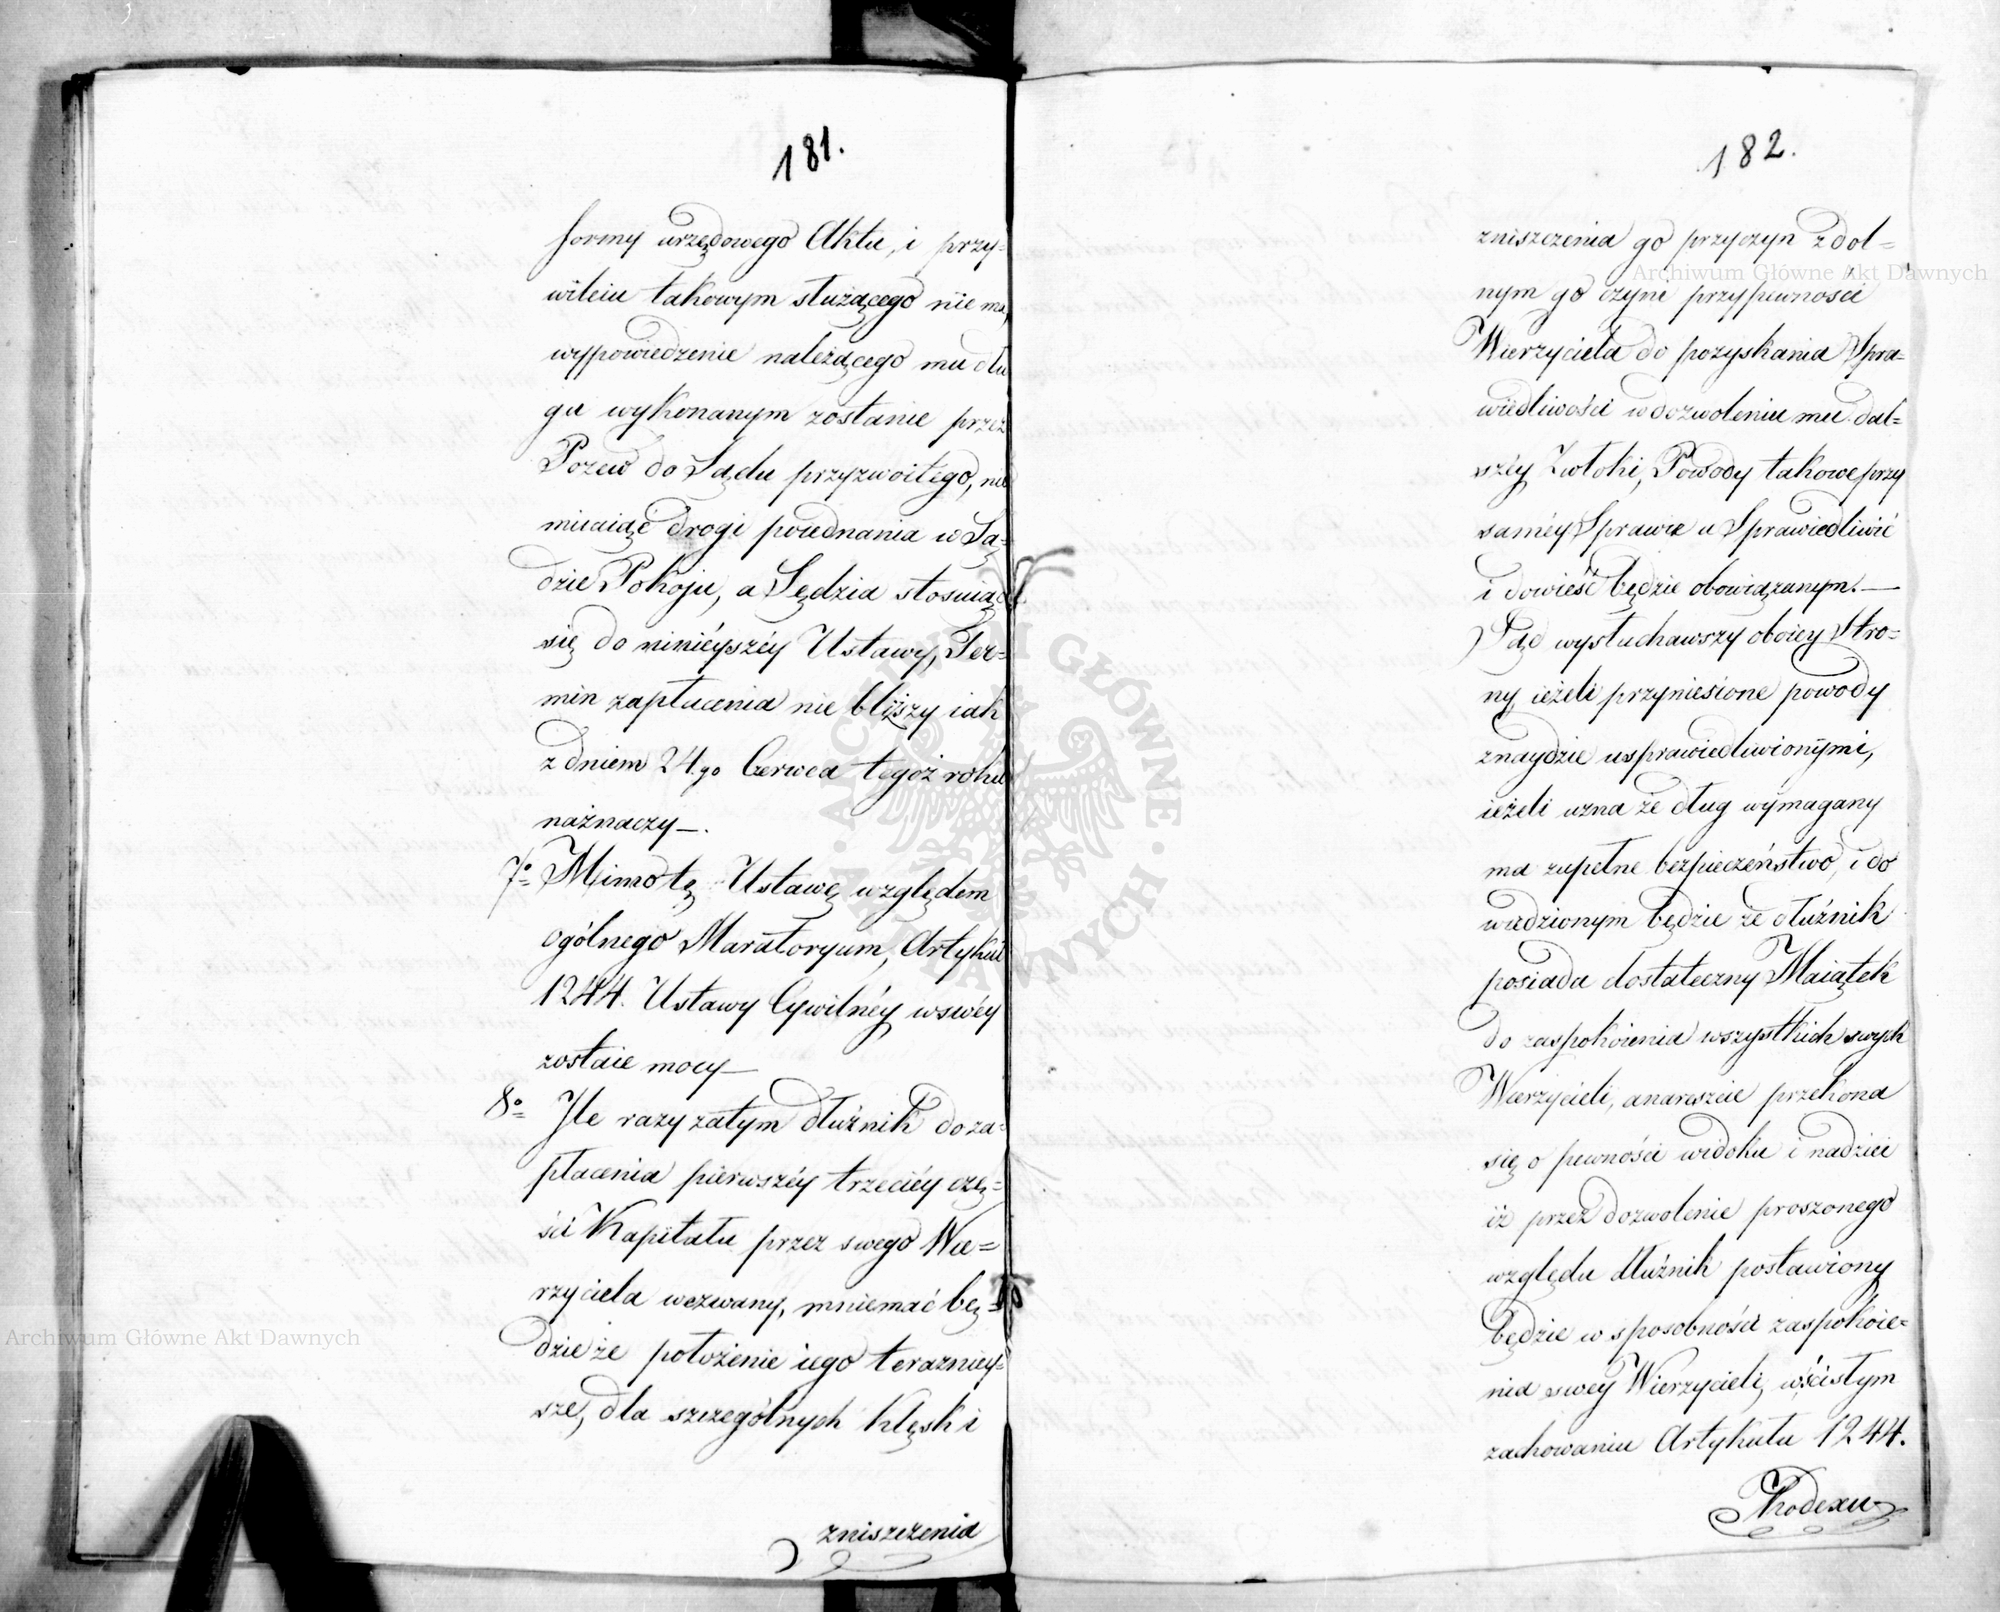 181.
formy urzędowego Aktu, i przy=
wileiu takowym służącego nie ma,
wypowiedzenie należącego mu dłu
gu wykonanym zostanie przez
Pozew do Sądu przyzwoitego, nie
miiaiąc drogi poiednania w Są=
dzie Pokoju, a Sędzia stosuiąc
się do ninieyszéy Ustawy, Ter=
min zapłacenia nie bliższy iak
z dniem 24.go Czerwca tegoż roku
naznaczy—.
7o Mimo tę Ustawę względem
ogólnego Maratoryum, Artykuł
1244. Ustawy Cywilnéy w swéy
zostaie mocy—
8o Ile razy zatym dłużnik do za=
płacenia pierwszéy trzeciéy czę=
ści Kapitału przez swego Wie=
rzyciela wezwany, mniemać bę=
dzie że położenie iego teraźniey=
sze, dla szczególnych klęsk i
zniszczenia
182.
zniszczenia go przyczyn zdol=
nym go czyni przy pewności
Wierzyciela do pozyskania Spra=
wiedliwości w dozwoleniu mu dal=
széy Zwłoki, Powody takowe przy
saméy Sprawie u Sprawiedliwić
i dowieść będzie obowiązanym.—
Sąd wysłuchawszy oboiey Stro=
ny, ieżeli przyniesione powody
znaydzie usprawiedliwionymi,
ieżeli uzna że dług wymagany
ma zupełne bezpieczeństwo, i do
wiedzionym będzie że dłużnik
posiada dostateczny Maiątek
do zaspokoienia wszystkich swych
Wierzycieli, anareszcie przekona
się o pewności widoku i nadziei
iż przez dozwolenie proszonego
względu dłużnik postawiony
będzie w sposobności zaspokoie=
nia swey Wierzycieli, w ścisłym
zachowaniu Artykułu 1244.
Kodexu
Archiwum Główne Akt Dawnych
Archiwum Główne Akt Dawnych
ARCHIWUM GŁÓWNE AKT DAWNYCH